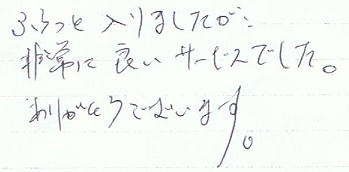 ふらっと入りましたが、
非常に良いサービスでした。
ありがとうございます。